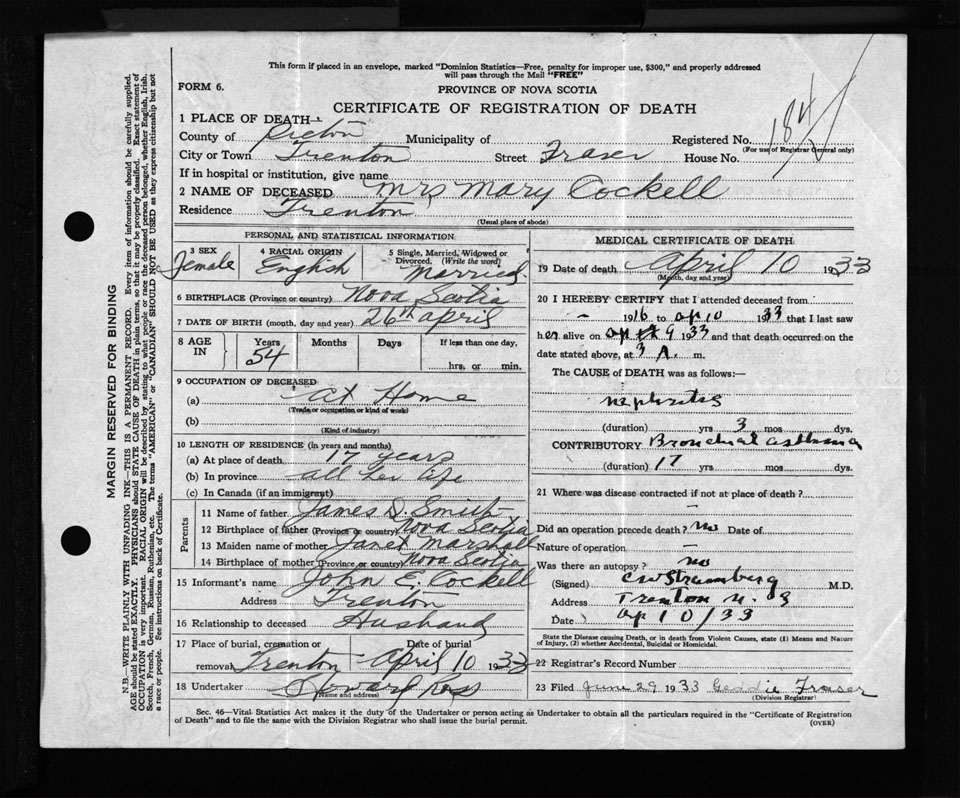 This form if placed in an envelope, marked "Dominion Statistics—Free, penalty for improper use, $300," and properly addressed
will pass through the Mail "FREE"
FORM 6.
PROVINCE OF NOVA SCOTIA
CERTIFICATE OF REGISTRATION OF DEATH
1 PLACE OF DEATH—
County of Pictou Municipality of Registered No. 184
(For use of Registrar General only)
City or Town Trenton Street Fraser House No.
If in hospital or institution, give name
2 NAME OF DECEASED Mrs Mary Cockell
Residence Trenton
(Usual place of abode)
PERSONAL AND STATISTICAL INFORMATION
3 SEX Female
4 RACIAL ORIGIN English
5 Single, Married, Widowed or
Divorced. (Write the word)
Married
6 BIRTHPLACE (Province or country) Nova Scotia
7 DATE OF BIRTH (month, day and year) 26th April
8 AGE IN Years 54 Months Days If less than one day,
hrs. or min.
9 OCCUPATION OF DECEASED
(a) At Home
(Trade or occupation or kind of work)
(b)
(Kind of industry)
10 LENGTH OF RESIDENCE (in years and months)
(a) At place of death 17 years
(b) In province all her life
(c) In Canada (if an immigrant)
Parents
11 Name of father James D. Smith
12 Birthplace of father (Province or country) Nova Scotia
13 Maiden name of mother Janet Marshall
14 Birthplace of mother (Province or country) Nova Scotia
15 Informant's name John E. Cockell
Address Trenton
16 Relationship to deceased Husband
17 Place of burial, cremation or Date of burial
removal Trenton April 10 1933
18 Undertaker Howard Ross
(Name and address)
MEDICAL CERTIFICATE OF DEATH
19 Date of death April 10 1933
(Month, day and year)
20 I HEREBY CERTIFY that I attended deceased from
— 1916 to ap 10 1933 that I last saw
her alive on ap 9 33 and that death occurred on the
date stated above, at 3 A. m.
The CAUSE of DEATH was as follows:—
nephritis
(duration) yrs 3 mos dys.
CONTRIBUTORY Bronchial asthma
(duration) 17 yrs mos dys.
21 Where was disease contracted if not at place of death?
—
Did an operation precede death? no Date of
Nature of operation —
Was there an autopsy? no
(Signed) CW Stramberg M.D.
Address Trenton N. S
Date ap 10/33
State the Disease causing Death, or in death from Violent Causes, state (1) Means and Nature
of Injury, (2) whether Accidental, Suicidal or Homicidal.
22 Registrar's Record Number
23 Filed June 29 1933 Geddie Fraser
(Division Registrar)
Sec. 46—Vital Statistics Act makes it the duty of the Undertaker or person acting as Undertaker to obtain all the particulars required in the "Certificate of Registration
of Death" and to file the same with the Division Registrar who shall issue the burial permit.
(OVER)
MARGIN RESERVED FOR BINDING
N.B.—WRITE PLAINLY WITH UNFADING INK—THIS IS A PERMANENT RECORD. Every item of information should be carefully supplied.
AGE should be stated EXACTLY. PHYSICIANS should STATE CAUSE OF DEATH in plain terms, so that it may be properly classified. Exact statement of
OCCUPATION is very important. RACIAL ORIGIN will be described by stating to what people or race the deceased person belonged, whether English, Irish,
Scotch, French, German, Russian, Ruthenian, etc. The terms "AMERICAN" or "CANADIAN" SHOULD NOT BE USED as they express citizenship but not
a race or people. See instructions on back of Certificate.